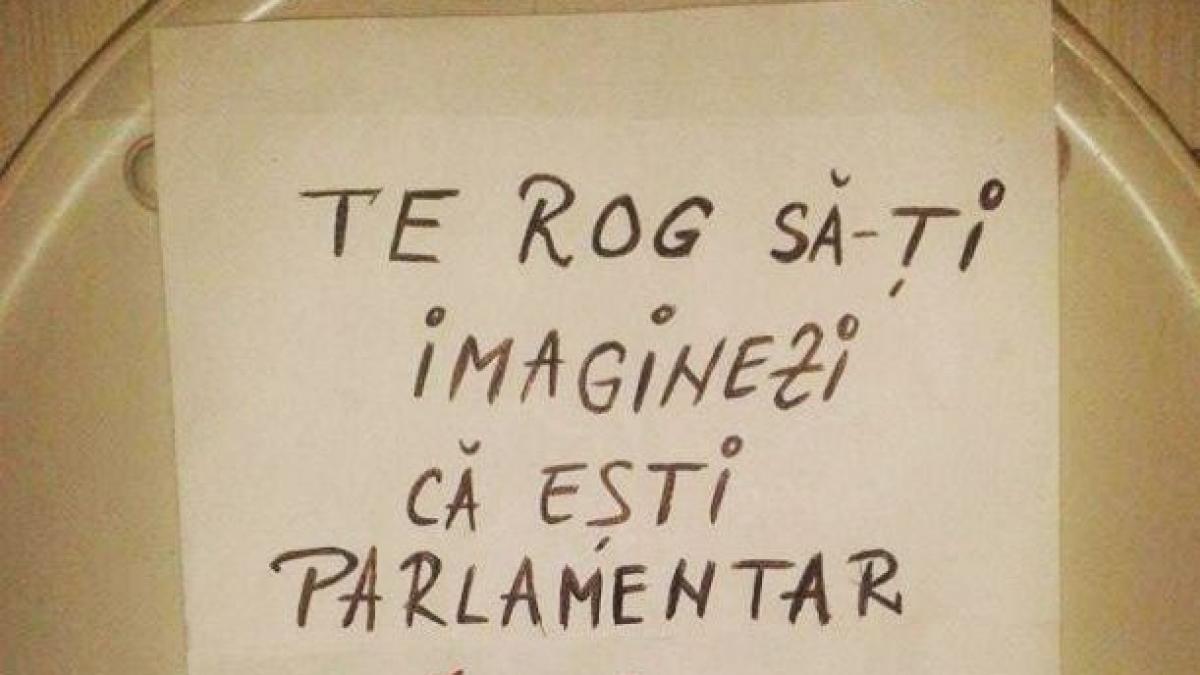 TE ROG SĂ-ȚI
IMAGINEZI
CĂ EȘTI
PARLAMENTAR